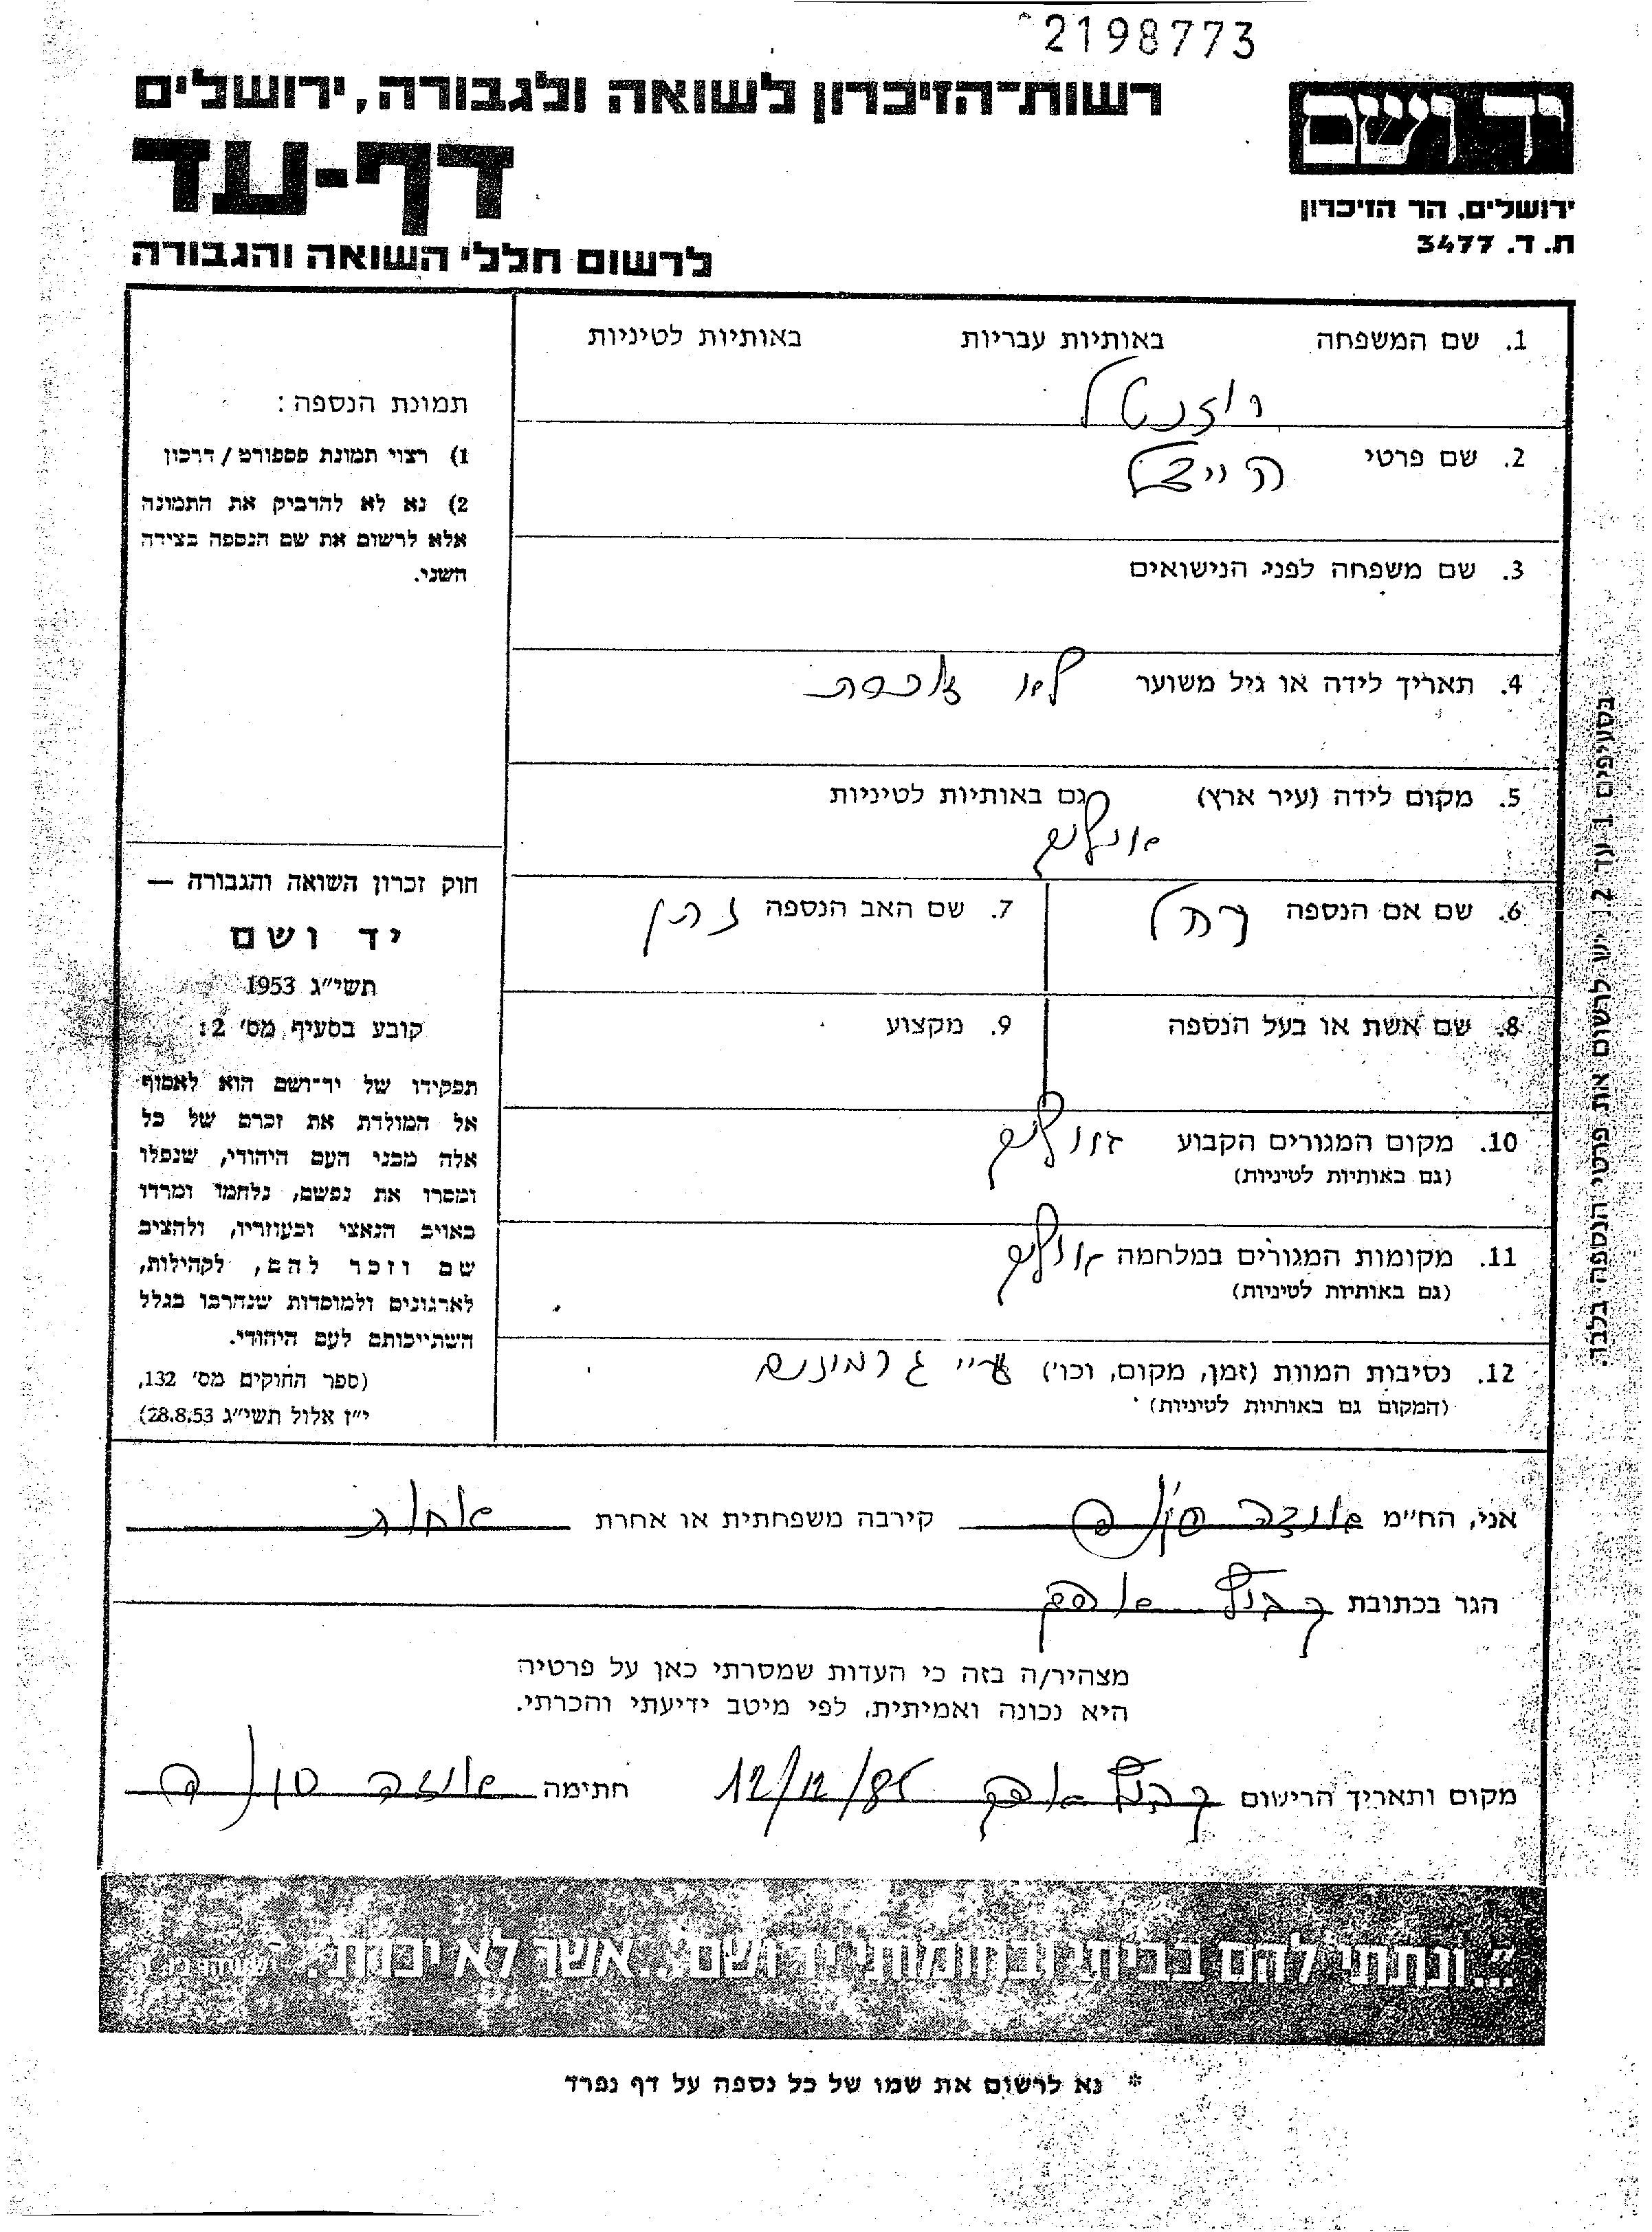 2198773
רשות־הזיכרון לשואה ולגבורה, ירושלים
יד ושם
דף-עד
ירושלים, הר הזיכרון
ת. ד. 3477
לרשום חללי השואה והגבורה
1. שם המשפחה באותיות עבריות באותיות לטיניות
רוזנטל
2. שם פרטי
הייצל
3. שם משפחה לפני הנישואים
4. תאריך לידה או גיל משוער לא זוכרת
5. מקום לידה (עיר ארץ) גם באותיות לטיניות
6. שם אם הנספה רחל 7. שם האב הנספה נתן
8. שם אשת או בעל הנספה 9. מקצוע
10. מקום המגורים הקבוע
(גם באותיות לטיניות)
11. מקומות המגורים במלחמה
(גם באותיות לטיניות)
12. נסיבות המוות (זמן, מקום, וכו') ע"י גרמונים
(המקום גם באותיות לטיניות)
תמונת הנספה:
1) רצוי תמונת פספורט / דרכון
2) נא לא להדביק את התמונה
אלא לרשום את שם הנספה בצידה
השני.
חוק זכרון השואה והגבורה —
יד ושם
תשי״ג 1953
קובע בסעיף מס׳ 2:
תפקידו של יד־ושם הוא לאסוף
אל המולדת את זכרם של כל
אלה מבני העם היהודי, שנפלו
ומסרו את נפשם, נלחמו ומרדו
באויב הנאצי ובעוזריו, ולהציב
שם וזכר להם, לקהילות,
לארגונים ולמוסדות שנחרבו בגלל
השתייכותם לעם היהודי.
(ספר החוקים מס׳ 132,
י״ז אלול תשי״ג 28.8.53)
בסעיפים 1 עד 12 יש לרשום את פרטי הנספה בלבד.
אני, הח״מ קירבה משפחתית או אחרת אחות
הגר בכתובת
מצהיר/ה בזה כי העדות שמסרתי כאן על פרטיה
היא נכונה ואמיתית, לפי מיטב ידיעתי והכרתי.
מקום ותאריך הרישום 12/12/85 חתימה
״...ונתתי להם בביתי ובחומותי יד ושם...אשר לא יכרת״.
* נא לרשום את שמו של כל נספה על דף נפרד